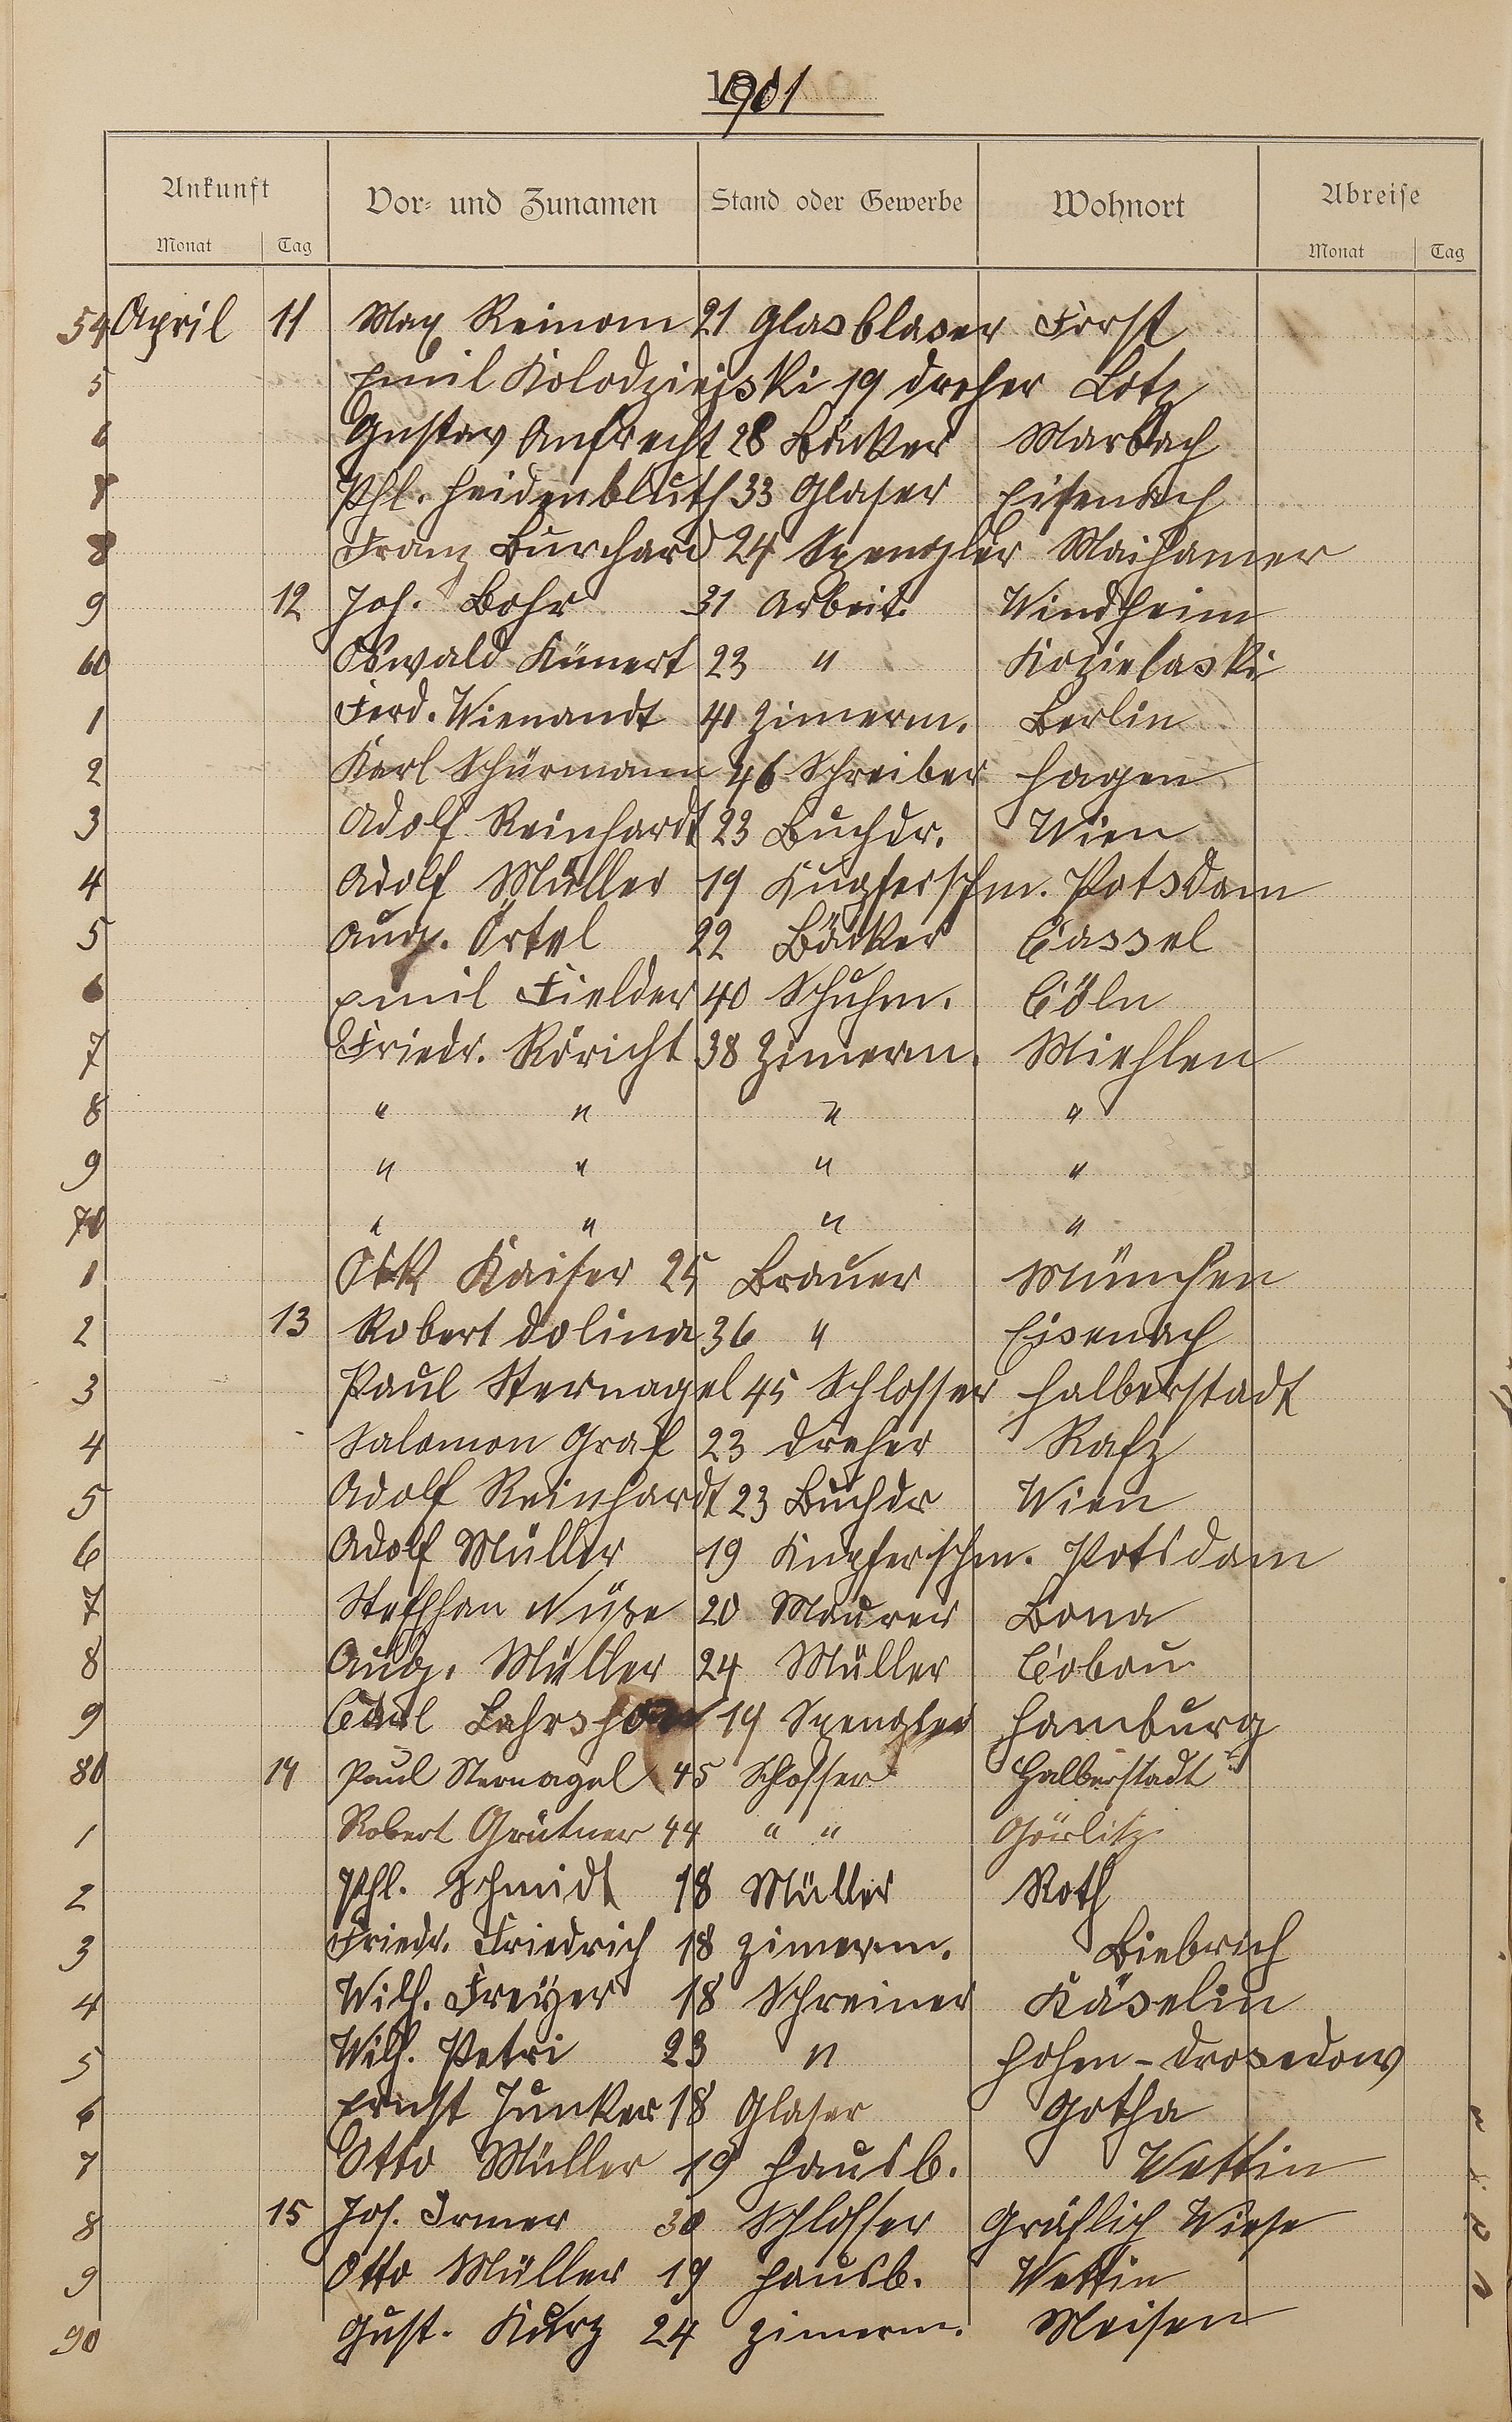 1901
Ankunft Vor- und Zunamen Stand oder Gewerbe Wohnort Abreise
Monat Tag Monat Tag
54 April 11 Max Reinom 21 Glasblaser Forst
5 Emil Kolodziejski 19 Dreher Lotz
6 Gustav Aufrecht 28 Bäcker Marbach
7 Phl. Heidenbluth 33 Glaser Eisenach
8 Franz Burchard 24 Spengler Maihamer
9 12 Joh. Bohr 31 Arbeit. Windheim
60 Oswald Künert 23 " Kozielaski
1 Ferd. Wienandt 41 Zimerm. Berlin
2 Karl Schürmann 46 Schreiber Hagen
3 Adolf Reinhardt 23 Buchdr. Wien
4 Adolf Müller 19 Kupferschm. Potsdam
5 Aug. Örtel 22 Bäcker Cassel
6 Emil Fielder 40 Schuhm. Cöln
7 Friedr. Röricht 38 Zimerm. Miehlen
8 " " " "
9 " " " "
70 " " " "
1 Osk Kaiser 25 Brauer München
2 13 Robert Dolina 36 " Eisenach
3 Paul Sternagel 45 Schlosser Halberstadt
4 Salomon Graf 23 Dreher Rafz
5 Adolf Reinhardt 23 Buchdr Wien
6 Adolf Müller 19 Kupferschm. Potsdam
7 Steffhan Nüße 20 Maurer Bona
8 Aug. Müller 24 Müller Cobau
9 Carl 19 Spengler Hamburg
80 14 Paul Sternagel 45 Schlosser Halberstadt
1 Robert Grütner 44 " " Görlitz
2 Phl. Schmidt 18 Müller Roth
3 Friedr. Friedrich 18 Zimerm. Biebrich
4 Wilh. Freÿer 18 Schreiner Käselin
5 Wilh. Petri 23 " Hohen-Drosedow
6 Ernst Junker 18 Glaser Gotha
7 Otto Müller 19 Hausb. Wettin
8 15 Jos. Irmer 30 Schlosser Gräflich Wiese
9 Otto Müller 19 Hausb. Wettin
90 Gust. Kurz 24 Zimerm. Meisen